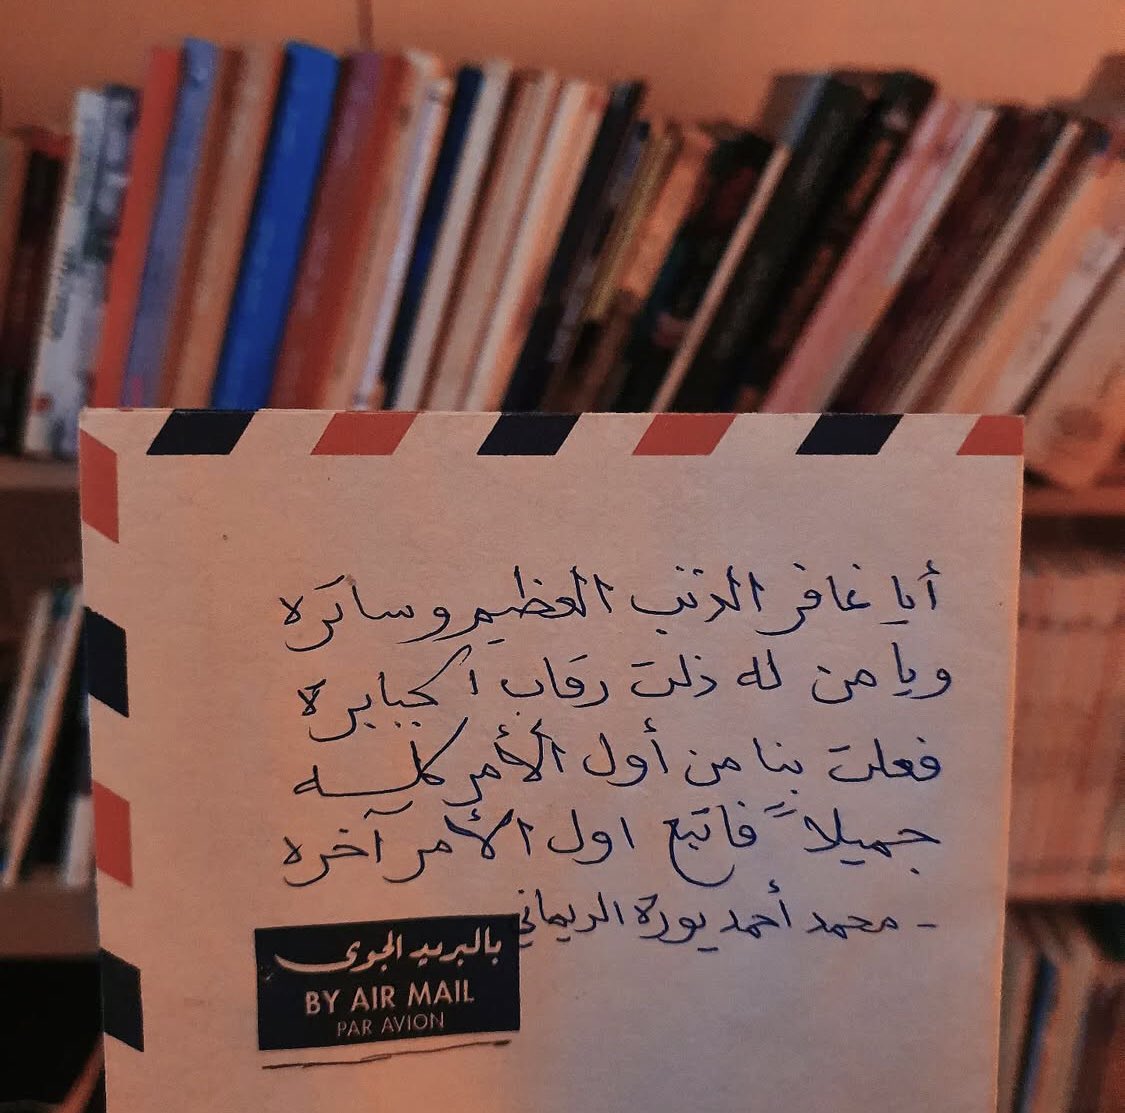 أيا غافر الذنب العظيم وساتره
ويا من له ذلت رقاب الجبابرة
فعلت بنا من أول الأمر كله
جميلاً فاتبع اول الأمر آخره
- محمد أحمد بورة الديماني
بالبريد الجوى
BY AIR MAIL
PAR AVION